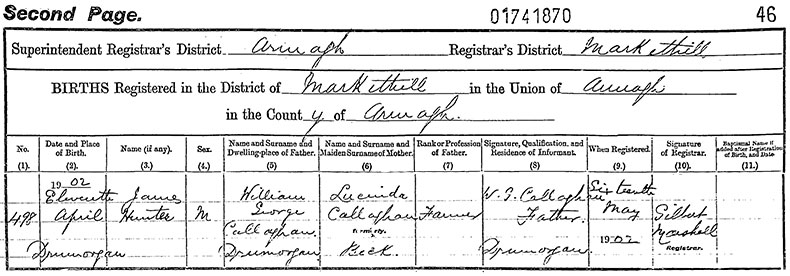 Second Page. 01741870 46
Superintendent Registrar's District Armagh Registrar's District Markethill
BIRTHS Registered in the District of Markethill in the Union of Armagh
in the County of Armagh.
No. Date and Place of Birth. Name (if any). Sex. Name and Surname and Dwelling-place of Father. Name and Surname and Maiden Surname of Mother. Rank or Profession of Father. Signature, Qualification, and Residence of Informant. When Registered. Signature of Registrar. Baptismal Name if added after Registration of Birth, and Date
(1). (2). (3.) (4.) (5) (6) (7) (8) (9.) (10). (11.)
1902
Eleventh James William Lucinda W. G. Callaghan Sixteenth
498 April Hunter M. George Callaghan Farmer Father. May Gilbert
Callaghan formerly Marshall
Drumorgan Drumorgan Beck. Drumorgan 1902 Registrar.